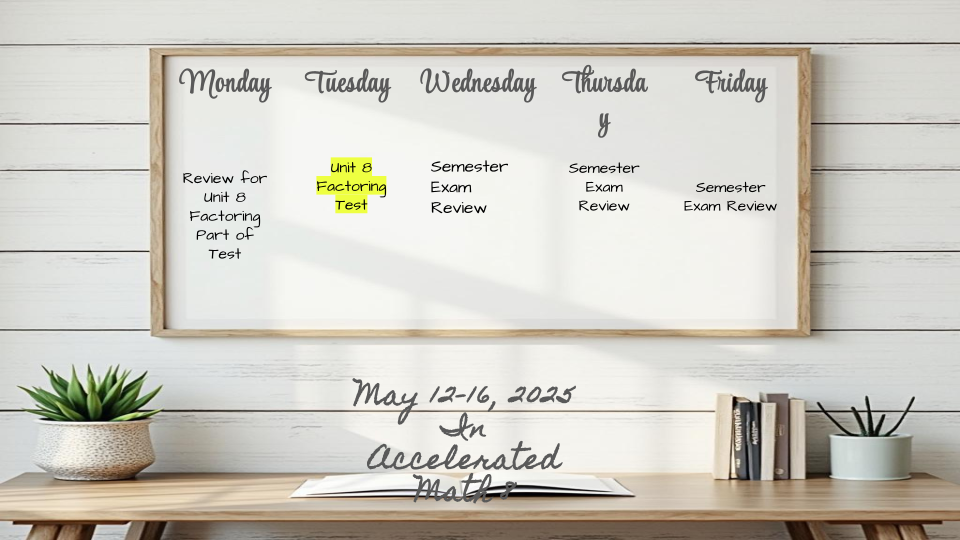 Monday
Tuesday
Wednesday
Thursda
y
Friday
Review for
Unit 8
Factoring
Part of
Test
Unit 8
Factoring
Test
Semester
Exam
Review
Semester
Exam
Review
Semester
Exam Review
May 12-16, 2025
In
Accelerated
Math 8